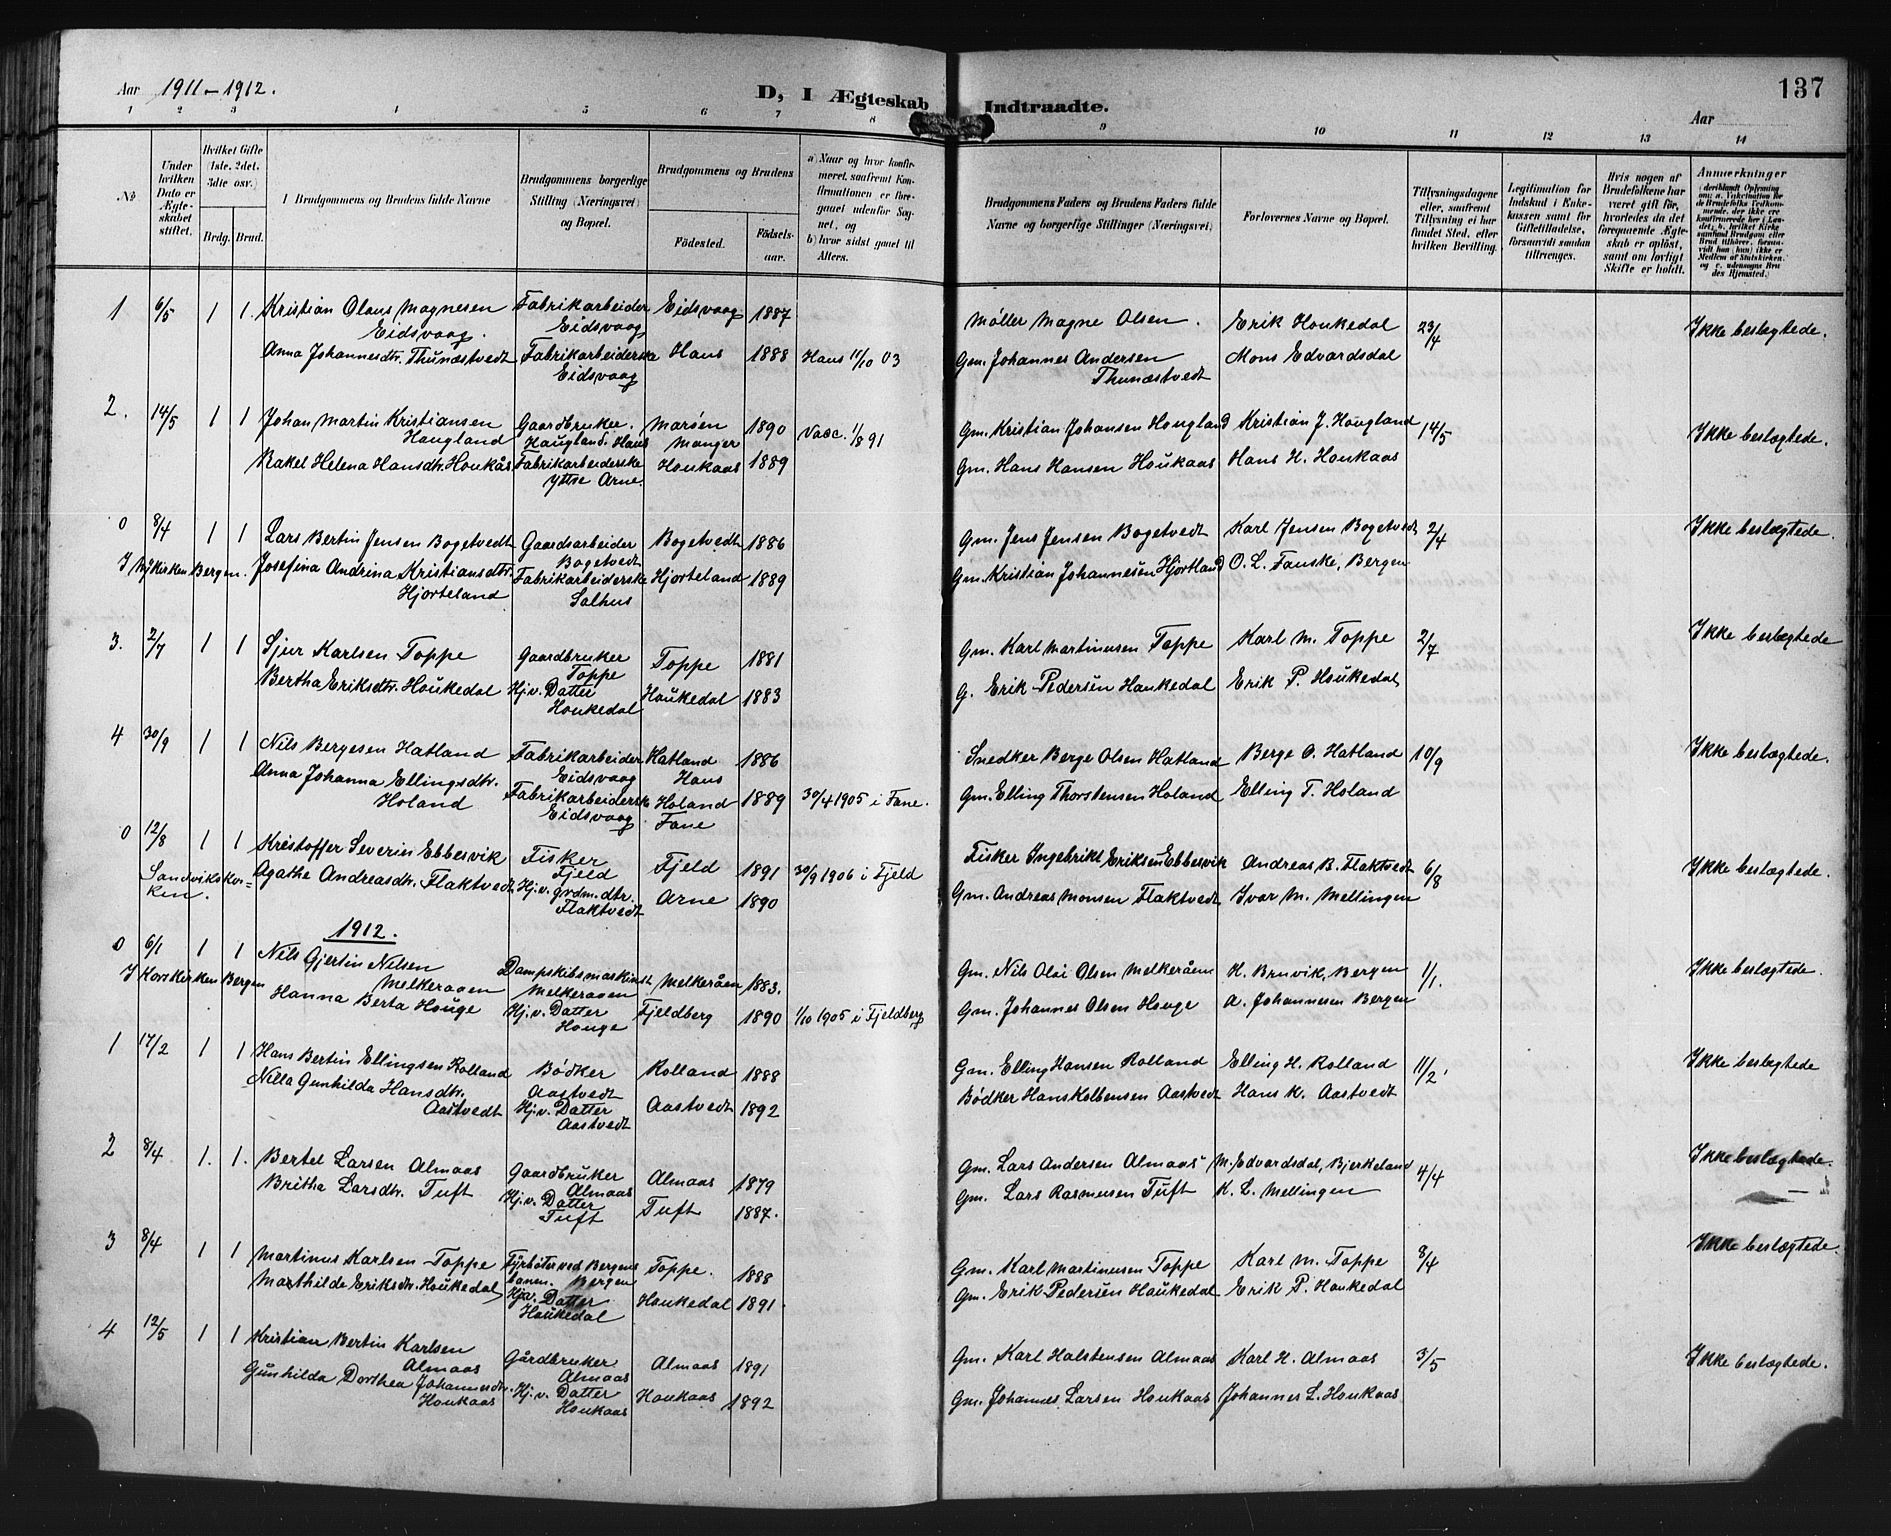 137
Aar 1911–1912.
D, I Ægteskab Indtraadte.
Aar
1 2 3 4 5 6 7 8 9 10 11 12 13 14
No
Under hvilken Dato er Ægteskabet stiftet.
Hvilket Gifte (1ste, 2det, 3die osv.)
Brdg. Brud.
Brudgommens og Brudens fulde Navne
Brudgommens borgerlige Stilling (Næringsvei) og Bopæl.
Brudgommens og Brudens
Födested.
Födsels-aar.
a) Naar og hvor konfirmeret, saafremt Konfirmationen er foregaaet udenfor Sognet, og
b) hvor sidst gaaet til Alters.
Brudgommens Faders og Brudens Faders fulde Navne og borgerlige Stillinger (Næringsvei)
Forlovernes Navne og Bopæl.
Tillysningsdagene eller, saafremt Tillysning ei har fundet Sted, efter hvilken Bevilling.
Legitimation for Indskud i Enkekassen samt for Giftetilladelse, forsaavidt saadan tiltrænges.
Hvis nogen af Brudefolkene har været gift för, hvorledes da det foregaaende Ægteskab er oplöst, samt om lovligt Skifte er holdt.
Anmærkninger
1 6/5 1 1. Kristian Olaus Magnesen Fabrikarbeider Eidsvaag 1887 Møller Magne Olsen. Erik Houkedal 23/4 Ikke beslægtede.
Eidsvaag. Eidsvaag
Anna Johannesdtr. Thunæstvedt Fabrikarbeiderske Haus 1888 Haus 11/10 03 Gm. Johannes Andersen Mons Edvardsdal
Eidsvaag Thunæstvedt
2. 14/5 1 1 Johan Martin Kristiansen Gaardbruker. Marøen 1890 Vacc. 1/8 91 Gm. Kristian Johansen Hougland Kristian J. Hougland 14/5 Ikke beslægtede.
Haugland Haugland. Haus Manger
Rakel Helena Hansdtr. Houkås Fabrikarbeiderske Houkaas 1889 Gm. Hans Hansen Houkaas Hans H. Houkaas
Yttse Arne.
0 8/4 1 1 Lars Bertin Jensen Bogetvedt Gaardsarbeider Bogetvedt 1886 Gm. Jens Jensen Bogetvedt Karl Jensen Bogetvedt 2/4 Ikke beslægtede.
Bogetvedt
I Nykirken Bergen. Josefina Andrina Kristiansdtr. Fabrikarbeiderske Hjorteland 1889 Gm. Kristian Johannesen Hjortland O. L. Fauske, Bergen
Hjorteland Salhus
3. 2/7 1 1 Sjur Karlsen Toppe Gaardbruker Toppe 1881 Gm. Karl Martinusen Toppe Karl M. Toppe 2/7 Ikke beslægtede
Toppe
Bertha Eriksdtr. Houkedal Hj.v. Datter Houkedal 1883 G. Erik Pedersen Haukedal Erik P. Houkedal
Houkedal
4 30/9 1 1 Nils Bergesen Hatland Fabrikarbeider Hatland 1886 Snedker Berge Olsen Hatland Berge O. Hatland 10/9 Ikke beslægtede.
Eidsvaag Haus
Anna Johanna Ellingsdtr. Fabrikarbeiderske Holand 1889 30/4 1905 i Fane. Gm. Elling Thorstensen Holand Elling T. Holand
Holand Eidsvaag Fane
0 12/8 1 1 Kristoffer Severin Ebbesvik Fisker Fjeld 1891 30/9 1906 i Fjeld Fisker Ingebrikt Eriksen Ebbesvik Andreas B. Flaktvedt 6/8 Ikke beslægtede.
Fjeld
Sandvikskirken. Agathe Andreasdtr. Flaktvedt Hj.v. grdm.dtr. Arne 1890 Gm. Andreas Monsen Flaktvedt Ivar M. Mellingen
Flaktvedt
1912.
0 6/1 1 1 Nils Gjertin Nilsen Dampskibsmaskinist Melkeråen 1883. Gm. Nils Olai Olsen Melkeråen K. Bruvik, Bergen 1/1. Ikke beslægtede.
Melkeraaen Melkeraaen
I Korskirken Bergen Hanna Berta Houge Hj.v. Datter Fjeldberg 1890 1/10 1905 i Fjeldberg Gm. Johannes Olsen Houge A. Johannesen Bergen
Houge
1 17/2 1 1 Hans Bertin Ellingsen Rolland Bødker Rolland 1888 Gm. Elling Hansen Rolland Elling H. Rolland 11/2. Ikke beslægtede
Aastvedt
Nilla Gunhilda Hansdtr. Hj.v. Datter Aastvedt 1892 Bødker Hans Kolbensen Aastvedt Hans K. Aastvedt
Aastvedt Aastvedt
2 8/4 1. 1. Bertel Larsen Almaas Gaardbruker Almaas 1879 Gm. Lars Andersen Almaas M. Edvardsdal, Bjerkeland 4/4 Ikke beslægtede.
Almaas
Britha Larsdtr. Tuft Hj.v. Datter Tuft 1887. Gm. Lars Rasmusen Tuft K. L. Mellingen
Tuft
3 8/4 1 1 Martinus Karlsen Toppe Fyrbøter ved Bergens Toppe. 1888 Gm. Karl Martinusen Toppe Karl M. Toppe 8/4 Ikke beslægtede.
banen. Bergen
Marthilde Eriksdtr. Houkedal Hj.v. Datter Houkedal 1891. Gm. Erik Pedersen Houkedal Erik P. Houkedal
Houkedal
4 12/5 1 1 Kristian Bertin Karlsen Gårdbruker Almaas 1891 Gm. Karl Halstensen Almaas Karl H. Almaas 3/5 Ikke beslægtede.
Almaas Almaas
Gunhilda Dorthea Johannesdtr. Hj.v. Datter Houkaas 1892 Gm. Johannes Larsen Houkaas Johannes L. Houkaas
Houkaas Houkaas